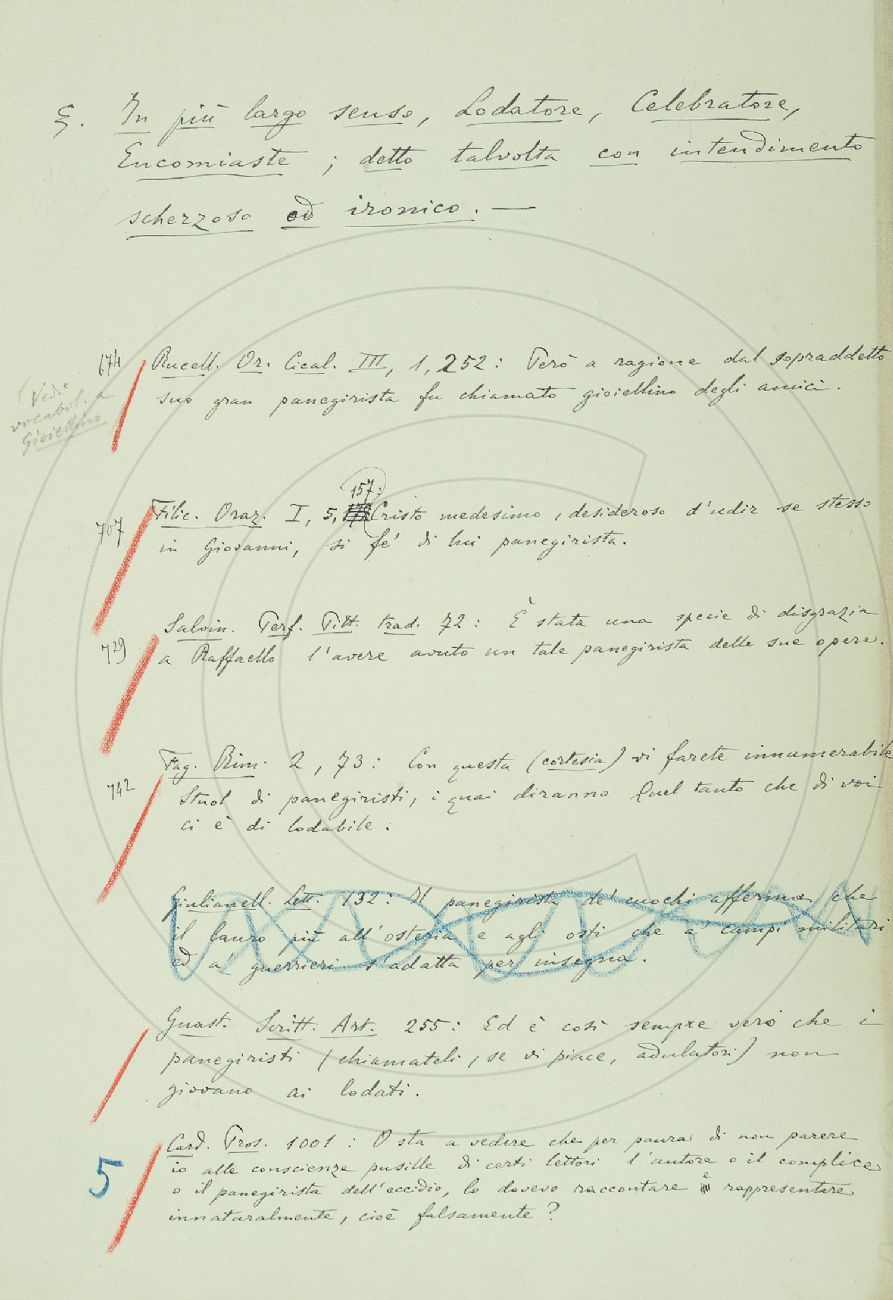 §. In più largo senso, Lodatore, Celebratore,
Encomiaste; detto talvolta con intendimento
scherzoso od ironico. —
674 Rucell. Or. Cical. III, 1, 252: Però a ragione dal sopraddetto
suo gran panegirista fu chiamato gioiellino degli amici.
(Vedi
vocabol. a
Gioiellino
157:
707 Filic. Oraz. I, 5, Cristo medesimo, desideroso d'udir se stesso
in Giovanni, si fe' di lui panegirista.
729 Salvin. Perf. Pitt. trad. 72: È stata una specie di disgrazia
a Raffaello l'avere avuto un tale panegirista delle sue opere.
742 Fag. Rim. 2, 73: Con questa (cortesia) vi farete innumerabile
Stuol di panegiristi, i quai diranno Quel tanto che di voi
ci è di lodabile.
Giulianell. Lett. 132: Il panegirista de' cuochi afferma che
il lauro più all'osteria e agli osti che a' campi militari
ed a' guerrieri s'adatta per insegna.
Guast. Scritt. Art. 255: Ed è così sempre vero che i
panegiristi (chiamateli, se vi piace, adulatori) non
giovano ai lodati.
5 Card. Pros. 1001: O sta a vedere che per paura di non parere
io alle conscienze pusille di certi lettori l'autore o il complice
o il panegirista dell'eccidio, lo dovevo raccontare e rappresentare
innaturalmente, cioè falsamente?